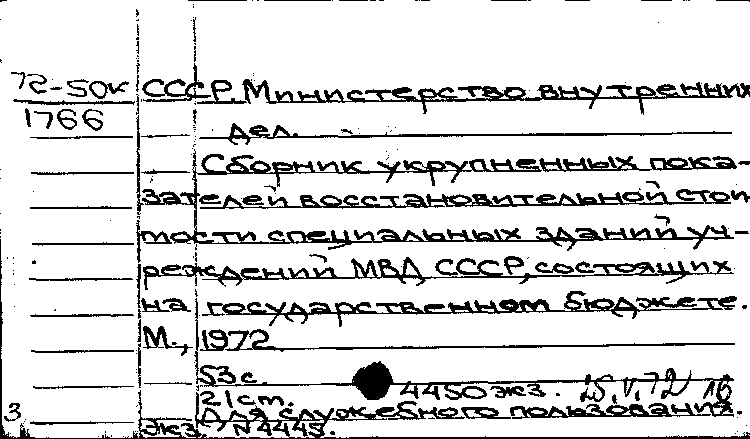 72-50к СССР. Министерство внутренних
1766
дел.
Сборник укрупненных пока-
зателей восстановительной стои
мости специальных зданий уч-
реждений МВД СССР, состоящих
на государственном бюджете.
М., 1972
53 с.
21 ст. 4450 экз. 25.V.72 16
Для служебного пользования.
3 Экз. N 4445.